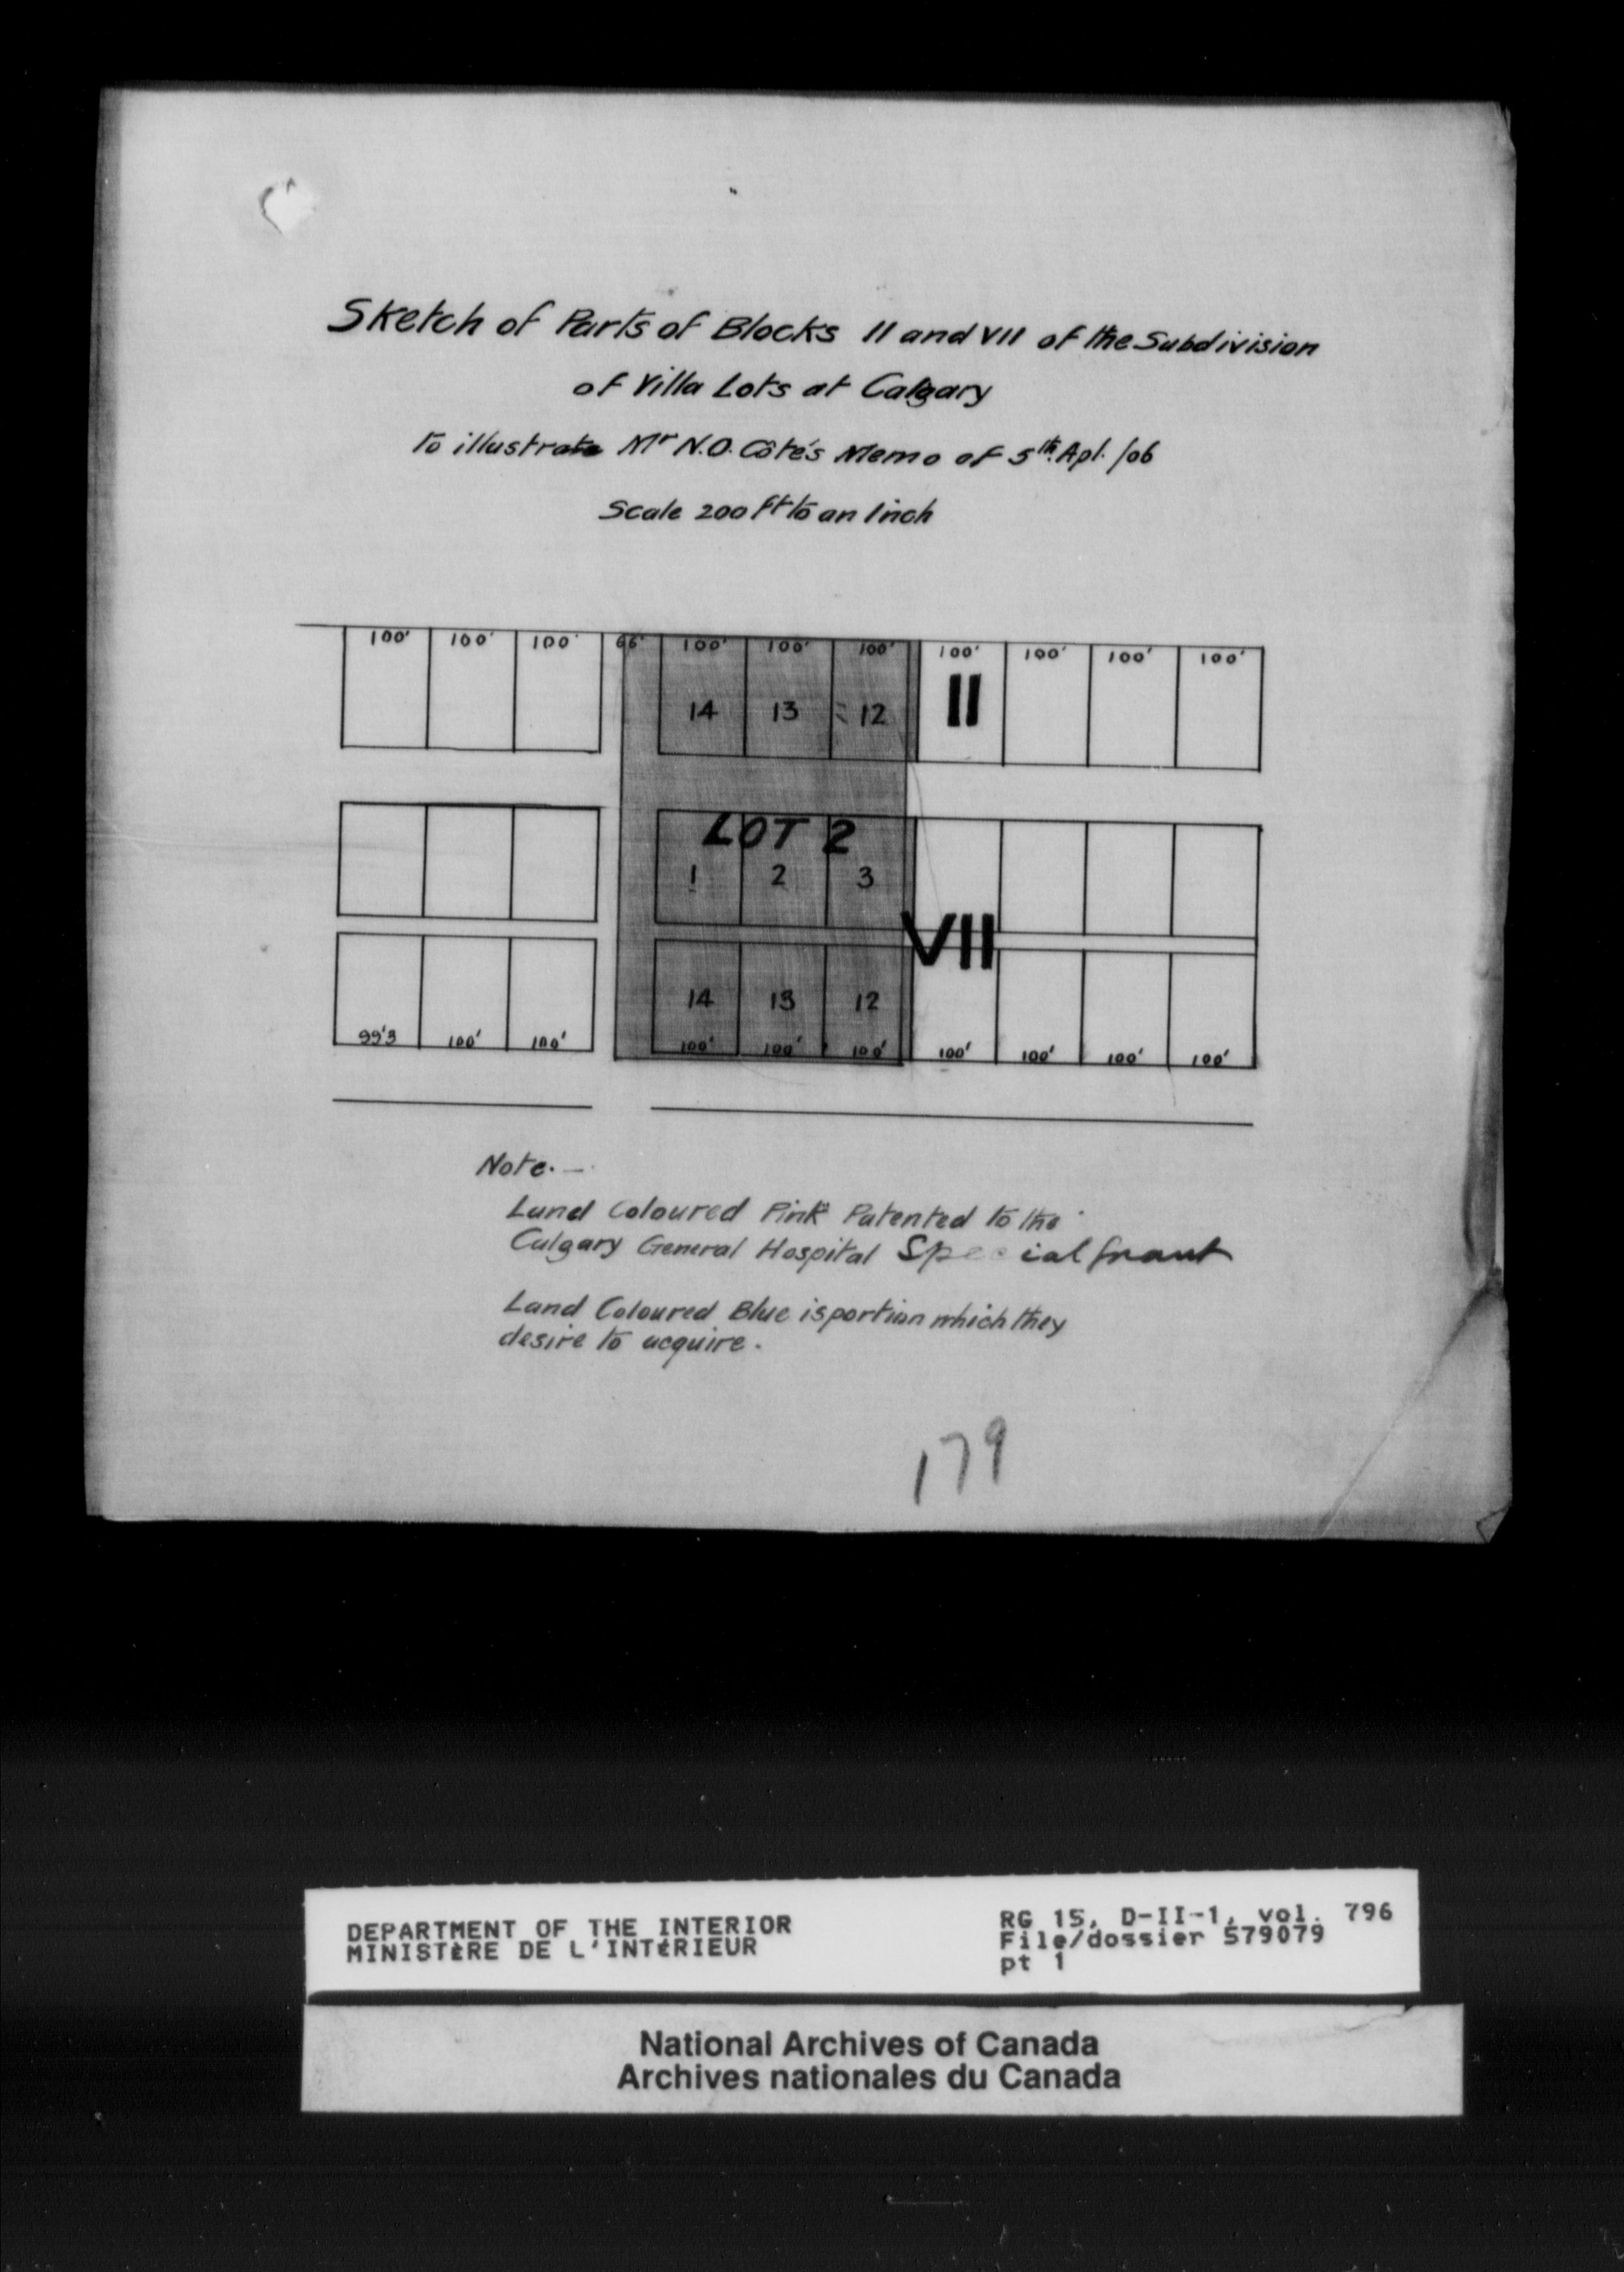 Sketch of Parts of Blocks II and VII of the Subdivision
of Villa Lots at Calgary
to illustrate Mr N.O. Côté's Memo of 5th Apl. /06
Scale 200 Ft to an Inch
100' 100' 100' 66' 100' 100' 100' 100' 100' 100' 100'
14 13 12 II
LOT 2
1 2 3
VII
14 13 12
99'3 100' 100' 100' 100' 100' 100' 100' 100' 100'
Note.—
Land Coloured Pink Patented to the
Calgary General Hospital Special Grant
Land Coloured Blue is portion which they
desire to acquire.
179
DEPARTMENT OF THE INTERIOR
MINISTÈRE DE L'INTÉRIEUR
RG 15, D-II-1, vol. 796
File/dossier 579079
pt 1
National Archives of Canada
Archives nationales du Canada